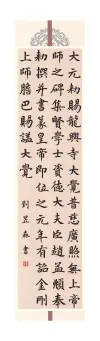 大元勅賜龍興寺大覺普慈廣照無上帝
師之碑集賢學士資德大夫臣趙孟頫奉
勅撰并書篆皇帝即位之元年有詔金剛
上師膽巴賜謚大覺 劉昱森書